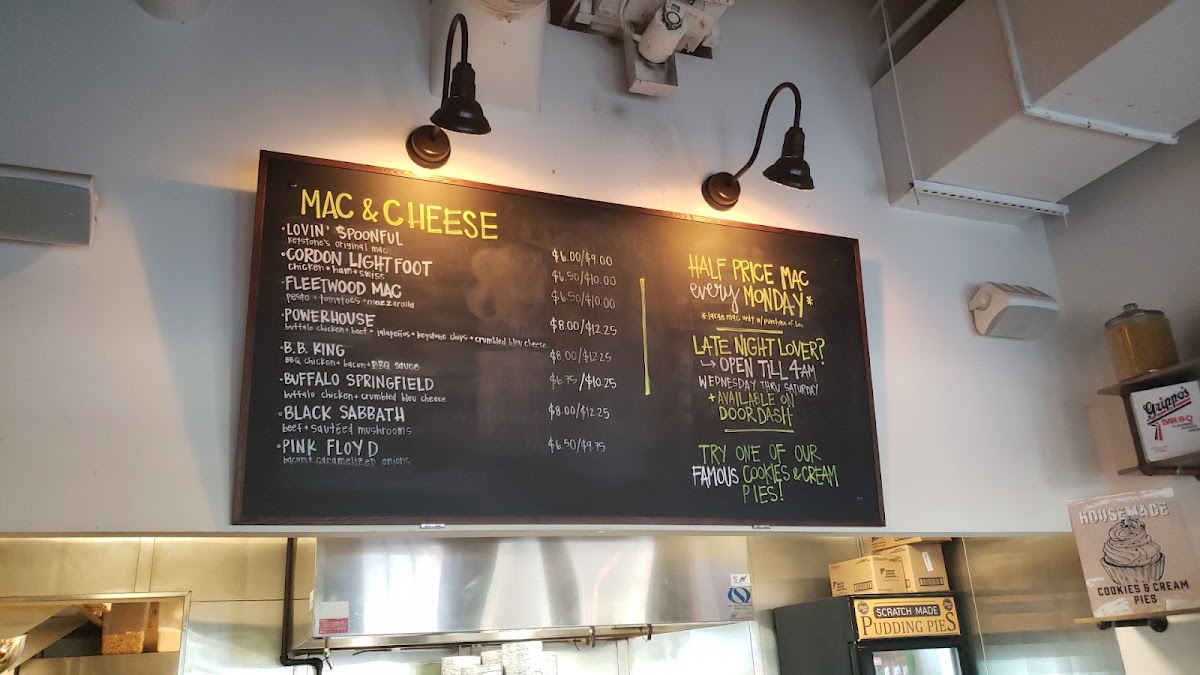 MAC & CHEESE
• LOVIN' SPOONFUL $6.00/$9.00
Keystone's original mac
• CORDON LIGHTFOOT $6.50/$10.00
chicken + ham + swiss
• FLEETWOOD MAC $6.50/$10.00
pesto + tomatoes + mozzarella
• POWERHOUSE $8.00/$12.25
buffalo chicken + beef + jalapeños + keystone chips + crumbled bleu cheese
• B.B. KING $8.00/$12.25
BBQ chicken + bacon + BBQ sauce
• BUFFALO SPRINGFIELD $6.75/$10.25
buffalo chicken + crumbled bleu cheese
• BLACK SABBATH $8.00/$12.25
beef + sautéed mushrooms
• PINK FLOYD $6.50/$9.75
bacon + caramelized onions
HALF PRICE MAC
every MONDAY*
*large mac only w/ purchase of bev
LATE NIGHT LOVER?
→ OPEN TILL 4AM
WEDNESDAY THRU SATURDAY
+ AVAILABLE ON
DOORDASH
TRY ONE OF OUR
FAMOUS COOKIES & CREAM
PIES!
Grippo's
BAR-B-Q
HOUSEMADE
COOKIES & CREAM
PIES
SCRATCH MADE
PUDDING PIES